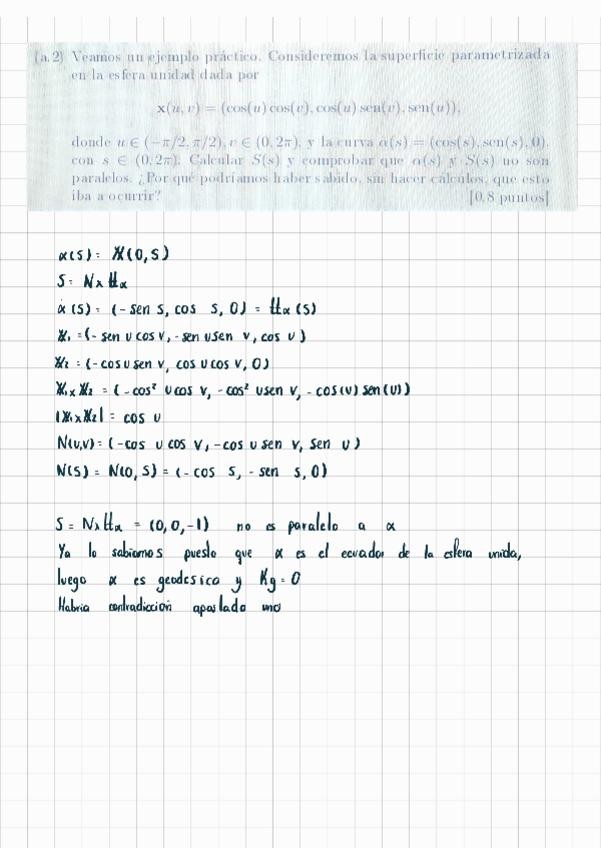 (a.2) Veamos un ejemplo práctico. Consideremos la superficie parametrizada
en la esfera unidad dada por
x(u, v) = (cos(u) cos(v), cos(u) sen(v), sen(u)),
donde u ∈ (−π/2, π/2), v ∈ (0, 2π), y la curva α(s) = (cos(s), sen(s), 0),
con s ∈ (0, 2π). Calcular S(s) y comprobar que α(s) y S(s) no son
paralelos. ¿Por qué podríamos haber sabido, sin hacer cálculos, que esto
iba a ocurrir? [0,8 puntos]
α(s) = X(0,s)
S = N x tα
α̇(s) = (- sen s, cos s, 0) = tα(s)
X₁ = (- sen u cos v, - sen u sen v, cos u)
X₂ = (- cos u sen v, cos u cos v, 0)
X₁ x X₂ = (- cos² u cos v, - cos² u sen v, - cos(u) sen(u))
|X₁ x X₂| = cos u
N(u,v) = (-cos u cos v, -cos u sen v, sen u)
N(s) = N(0, s) = (-cos s, - sen s, 0)
S = N x tα = (0, 0, -1) no es paralelo a α
Ya lo sabiamos puesto que α es el ecuador de la esfera unida,
luego α es geodesica y Kg = 0
Habria contradiccion apartado uno